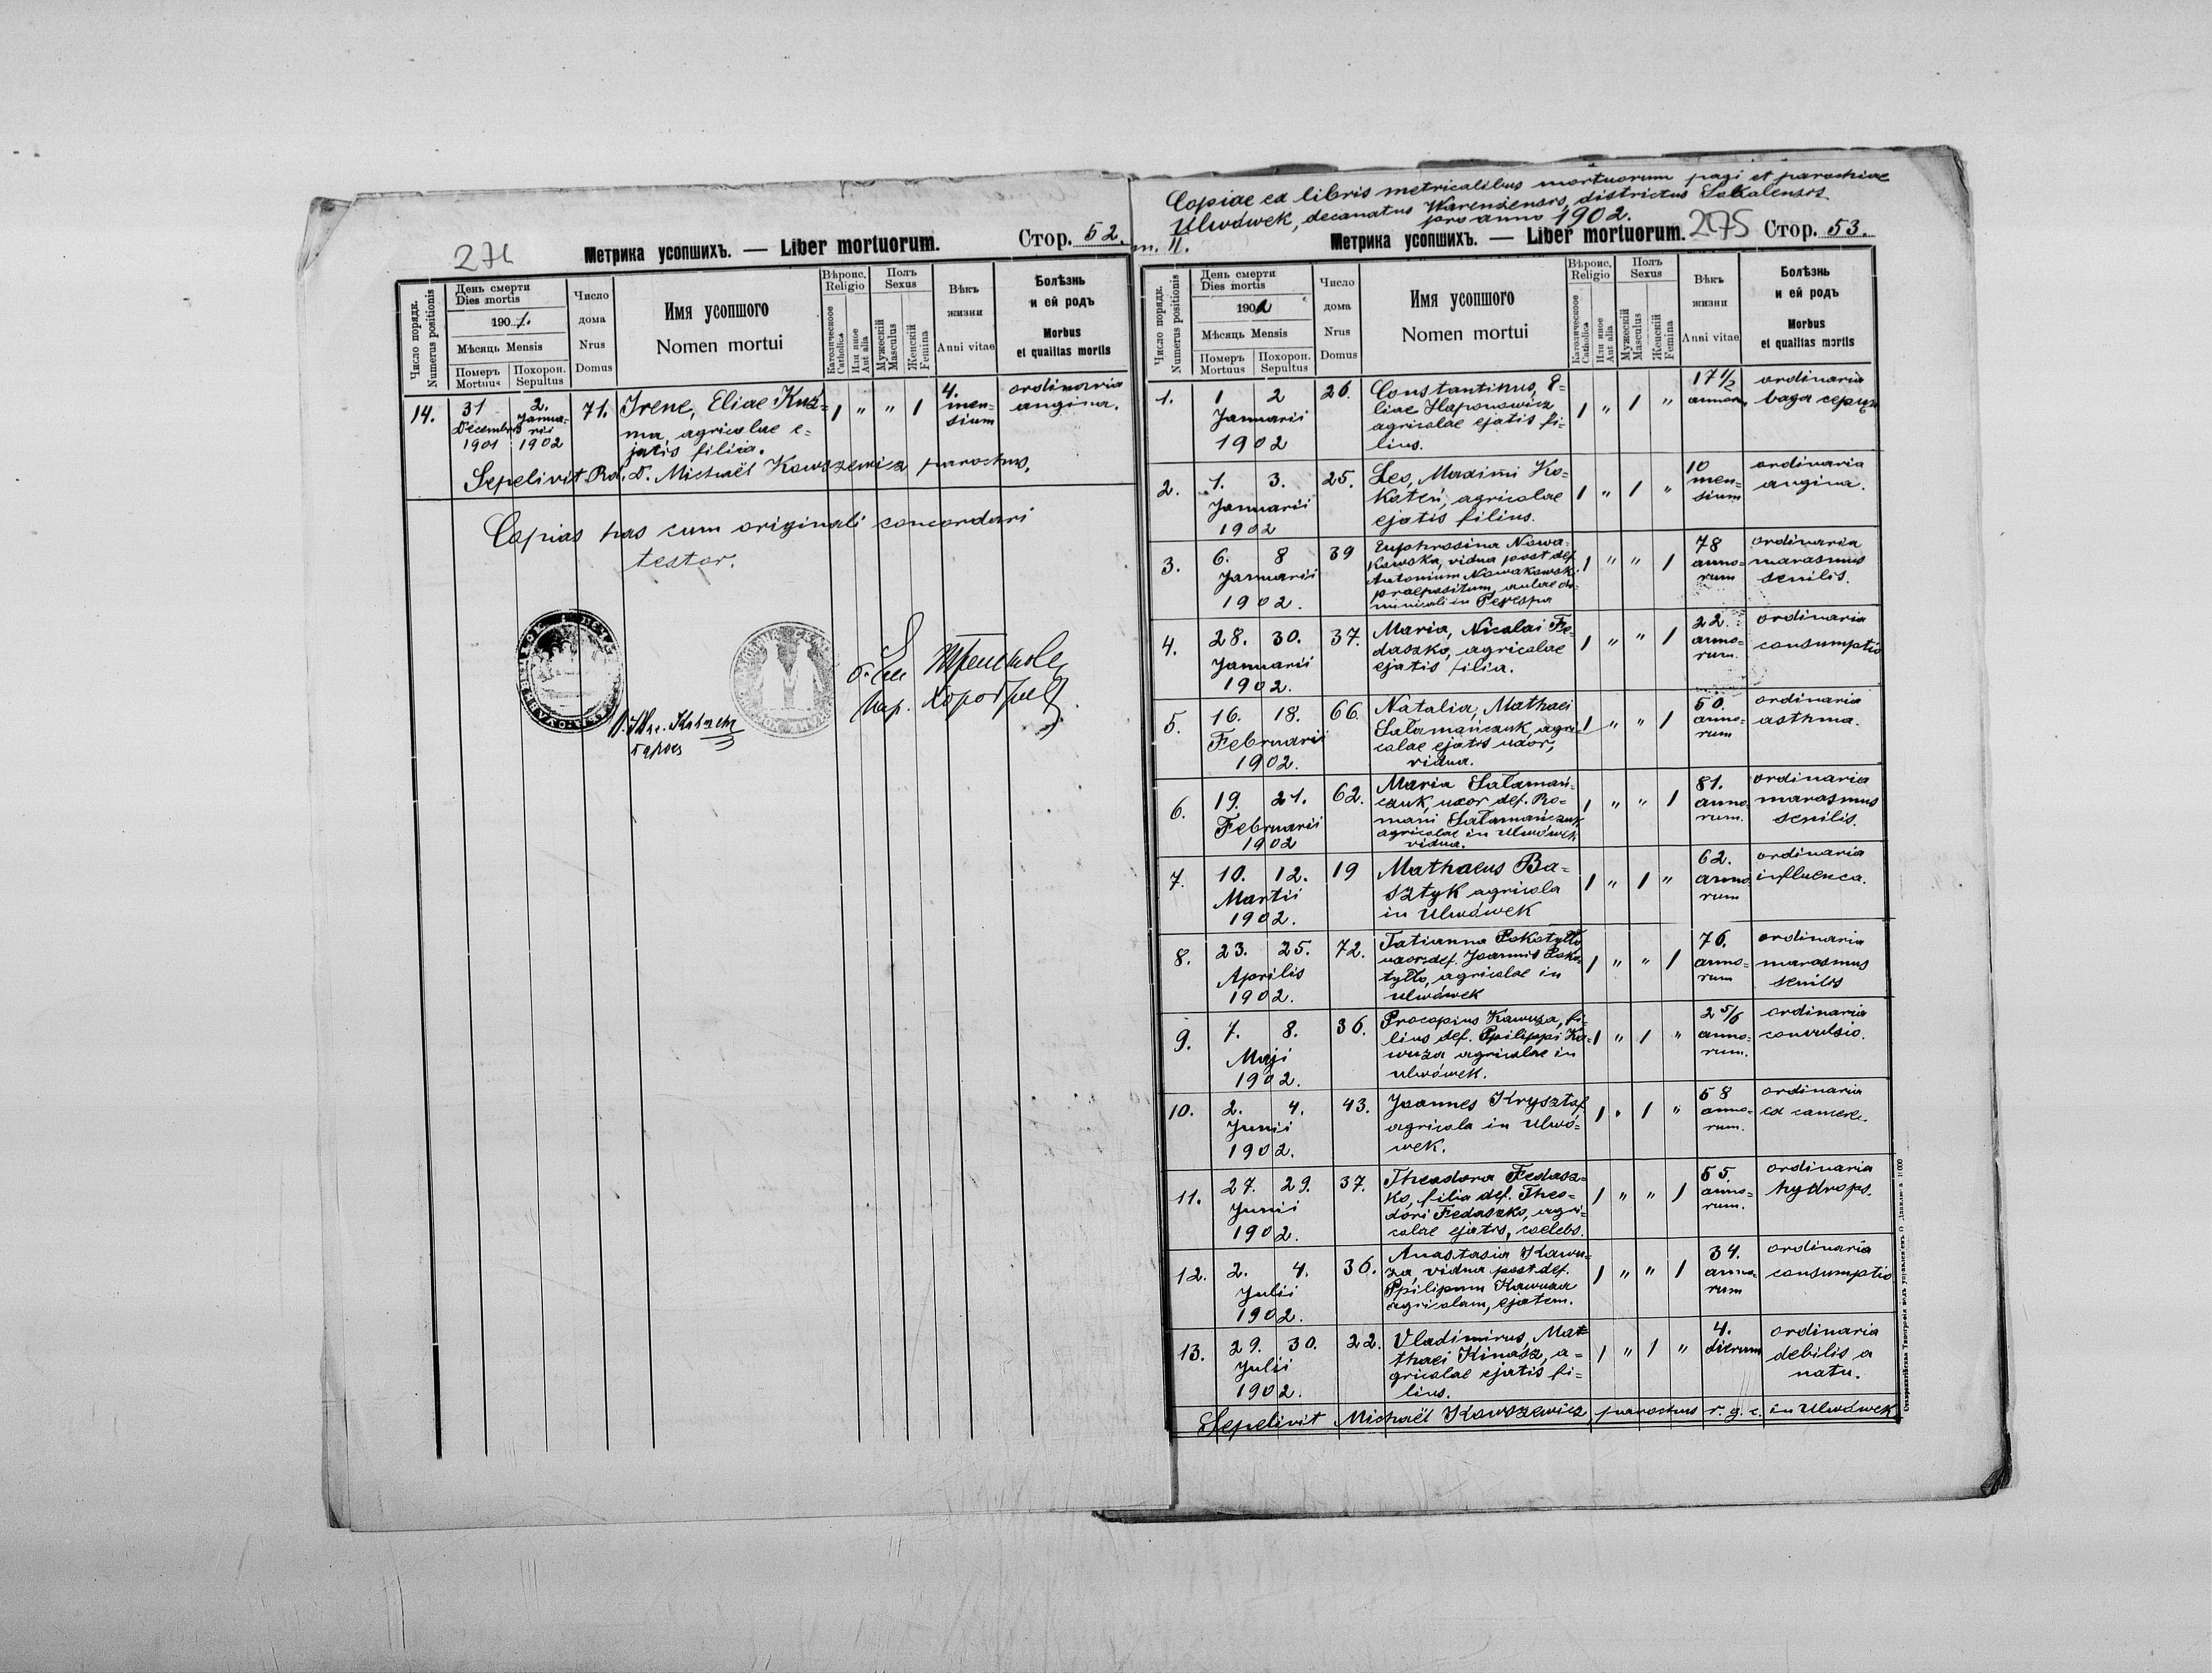 274
Метрика усопшихъ. — Liber mortuorum.
Стор. 52.
Число порядк.
Numerus positionis
День смерти
Dies mortis
1901.
Мѣсяць Mensis
Померъ
Mortuus
Похорон.
Sepultus
Число
дома
Nrus
Domus
Имя усопшого
Nomen mortui
Вѣроис.
Religio
Католическоое
Catholica
Или иное
Aut alia
Полъ
Sexus
Мужескій
Masculus
Женскій
Femina
Вѣкъ
жизни
Anni vitae
Болѣзнь
и ей родъ
Morbus
et qualitas mortis
14.
31
Decembris
1901
2.
Janua-
rii
1902
71.
Irene, Eliae Kuź=
ma, agricolae e=
jatis filia.
1 " " 1
4.
men=
sium
ordinaria
angina.
Sepelivit Rd. D. Michaël Kowszewicz parochus.
Copias has cum originali concordari
testor.
Copiae ex libris metricalibus mortuorum pagi et parochiae
Ulwówek, decanatus Warenżensis, districtus Sokalensis
pro anno 1902.
m. II.
Метрика усопшихъ. — Liber mortuorum.
275
Стор. 53.
Число порядк.
Numerus positionis
День смерти
Dies mortis
1902
Мѣсяць Mensis
Померъ
Mortuus
Похорон.
Sepultus
Число
дома
Nrus
Domus
Имя усопшого
Nomen mortui
Вѣроис.
Religio
Католическоое
Catholica
Или иное
Aut alia
Полъ
Sexus
Мужескій
Masculus
Женскій
Femina
Вѣкъ
жизни
Anni vitae
Болѣзнь
и ей родъ
Morbus
et qualitas mortis
1.
1 2
Januarii
1902
26.
Constantinus, E=
liae Haponowicz
agricolae ejatis fi=
lius.
1 " 1 "
17 1/2
annor.
ordinaria
вада серця
2.
1. 3.
Januarii
1902
25.
Leo, Maximi Ko-
kateń, agricolae
ejatis filius.
1 " 1 "
10
men=
sium
ordinaria
angina.
3.
6. 8
Januarii
1902.
39
Euphrosina Nowa-
kowska, vidua post def.
Antonium Nowakowsk.
praepositum aulae do-
minicali in Perespa
1 " " 1
78
anno=
rum
ordinaria
marasmus
senilis.
4.
28. 30.
Januarii
1902.
37.
Maria, Nicolai Fe-
daszko, agricolae
ejatis filia.
1 " " 1
22.
anno-
rum.
ordinaria
consumptio
5.
16. 18.
Februarii
1902.
66.
Natalia, Mathaei
Sałamańczuk, agri-
colae ejatis uxor,
vidua.
1 " " 1
50.
anno=
rum
ordinaria
asthma.
6.
19. 21.
Februarii
1902
62.
Maria Sałamań-
czuk, uxor def. Ro=
mani Sałamańczuk
agricolae in Ulwówek
vidua.
1 " " 1
81.
anno
rum.
ordinaria
marasmus
senilis.
7.
10. 12.
Martii
1902.
19
Mathaeus Ba=
sztyk agricola
in Ulwówek
1 " 1 "
62.
anno
rum
ordinaria
influenca.
8.
23. 25.
Aprilis
1902.
72.
Tatianna Pokotyłło
uxor def. Joannis Poko=
tyłło, agricolae in
Ulwówek
1 " " 1
76.
anno=
rum
ordinaria
marasmus
senilis
9.
7. 8.
Maji
1902.
36.
Procopius Kawuza, fi-
lius def. Ppilippi Ka=
wuza agricolae in
Ulwówek.
1 " 1 "
2 5/6
anno=
rum.
ordinaria
convulsio.
10.
2. 4.
Junii
1902.
43.
Joannes Krysztof
agricola in Ulwó=
wek.
1 " 1 "
58
anno=
rum.
ordinaria
ex cancere.
11.
27. 29.
Junii
1902.
37.
Theodora Fedasz=
ko, filia def. Theo=
dori Fedaszko, agri=
colae ejatis, coelebs.
1 " " 1
55.
anno=
rum.
ordinaria
hydrops.
12.
2. 4.
Julii
1902.
36.
Anastasia Kawu=
za, vidua post def.
Ppilipum Kawuza
agricolam, ejatem.
1 " " 1
34.
anno=
rum
ordinaria
consumptio
13.
29. 30.
Julii
1902.
22.
Vladimirus, Mat=
thaei Kinasz, a=
gricolae ejatis fi=
lius.
1 " 1 "
4.
dierum
ordinaria
debilis a
natu.
Sepelivit Michaël Kowszewicz, parochus r. g. c. in Ulwówek